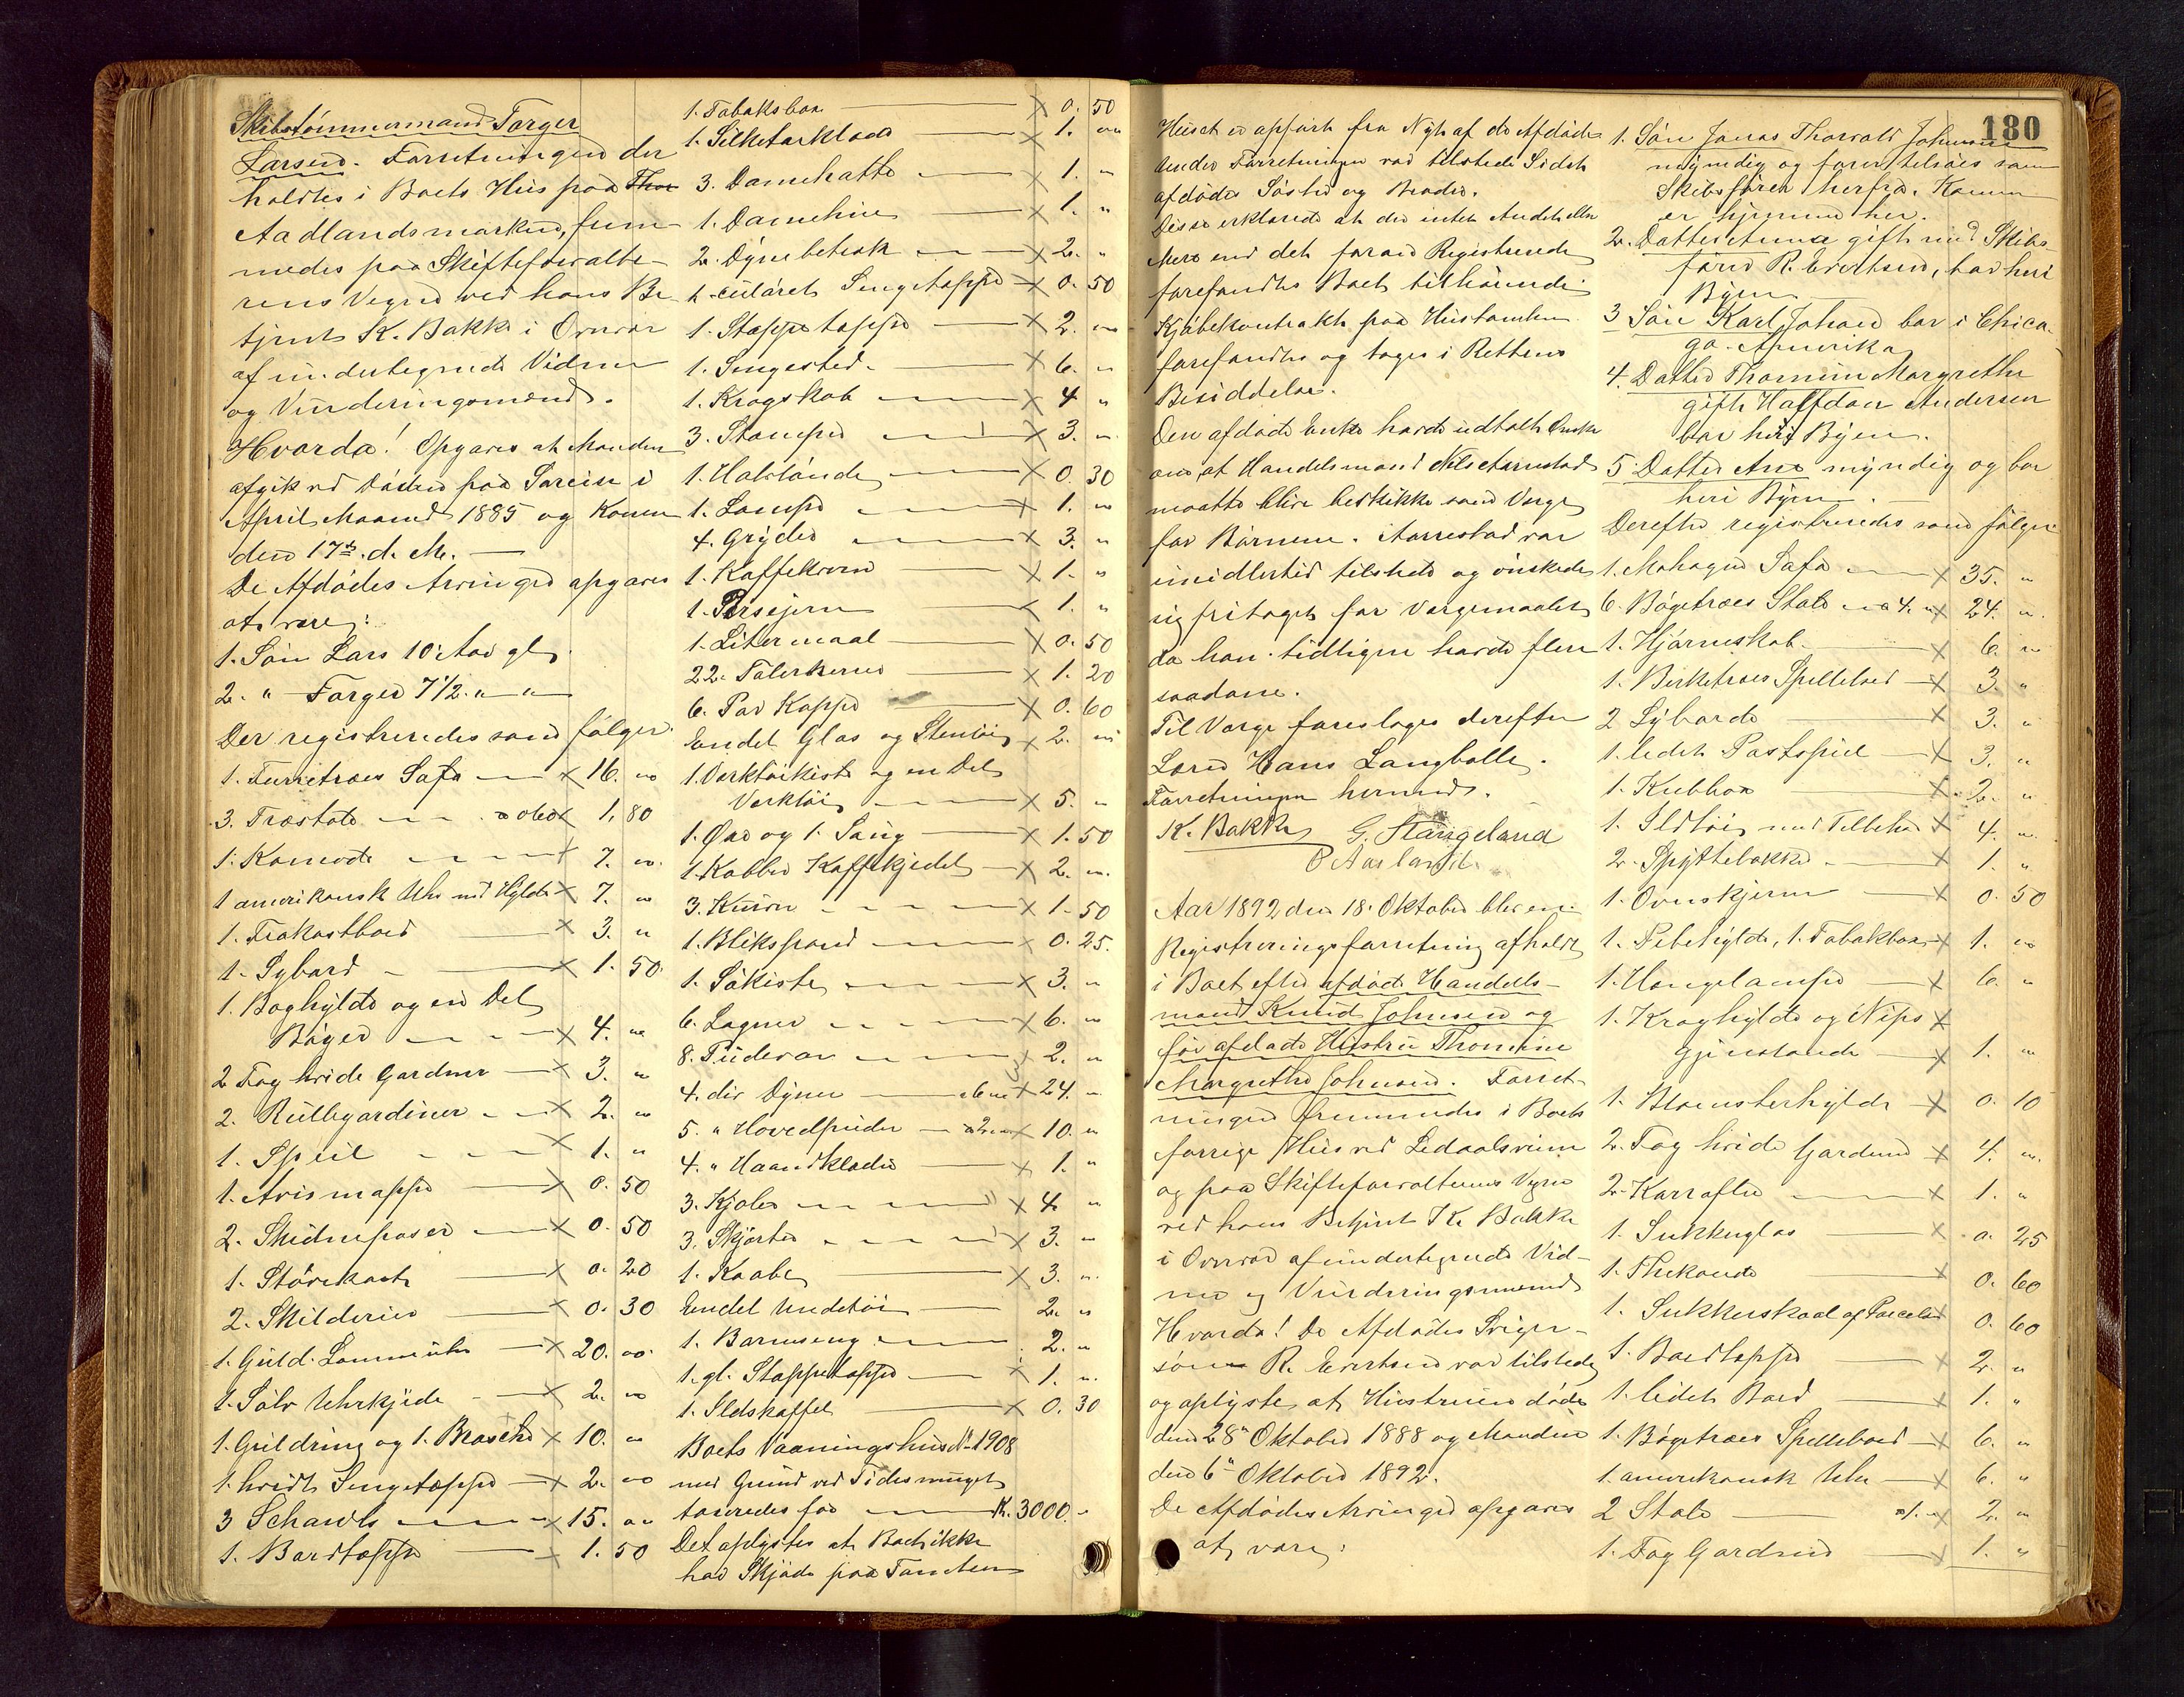 Skibstömmermand Torger
Larsen. Forretningen der
holdtes i Boets Hus paa Thor
Aadlandsmarken, frem-
medes paa Skifteforvalte-
rens Vegne ved hans Be
tjent K. Bakke i Overvær
af undertegnede Vidner
og Vurderingsmænd.
Hvorda! Opgaves at Manden
afgik ved Döden paa Søreise i
April Maaned 1885 og Konen
den 17de d. M. —
De Afdödes Arvinger opgaves
at være:
1. Sön Lars 10 Aar gl.
2. " Torger 7 1/2 " "
Der registreredes som fölger.
1. Furretræes Sofa — x 16. "
3. Træstole — a 0.60 x 1. 80
1. Komode — x 7. "
1 amerikansk Uhr med Hylde x 7. "
1. Frokostbord x 3. "
1. Sybord — x 1. 50
1. Boghylde og en Del
Böger — x 4. "
2 Fag hvide Gardiner — x 3. "
2. Rullegardiner — x 2. "
1. Speil — x 1. "
1. Avismappe x 0. 50
2. Skidneposer — x 0. 50
1. Störekost — x 0. 20
2. Skilderier — x 0. 30
1. Guld Lommeuhr — x 20. "
1. Sölv Uhrkjede — x 2. "
1. Guldring og 1. Brosche x 10. "
1. hvidt Sengetæppe — x 2. "
3 Schawls — x 15. "
1. Bordtæppe — x 1. 50
1. Tobaksbox — x 0. 50
1. Silketørklæde — x 1. "
3. Damehatte — x 1. "
1. Damehue — x 1. "
2. Dynebetræk — x 2. "
1 culöret Sengetæppe — x 0. 50
1. Stoppetæppe — x 2. "
1. Sengested. — x 6. "
1. Krogskab — x 4 "
3. Stamper — x 3. "
1. Halvtönde — x 0. 30
1. Lampe — x 1. "
4. Gryder — x 3. "
1. Kaffekvern — x 1. "
1. Persejern — x 1. "
1. Litermaal — x 0. 50
22. Tallerkener — x 1. 20
6. Par Kopper — x 0. 60
Endel Glas og Stentöi x 2. "
1. Verktöikiste og en Del
Verktöi — x 5. "
1. Øxe og 1. Saug — x 1. 50
1. Kobber Kaffekjedel — x 2. "
3. Knive — x 1. 50
1. Blikspand — x 0. 25.
1. Sökiste — x 3. "
6. Lagner — x 6. "
8. Pudevar — x 2. "
4. div Dyner — a 6 " x 24. "
5. " Hovedpuder — a 2 " x 10. "
4. " Haandklæder — x 1. "
3. Kjoler — x 4. "
3. Skjörter — x 3. "
1. Kaabe — x 3. "
Endel Undertöi — 2. "
1. Barneseng — 2. "
1. gl. Stoppetæppe — x 1. "
1. Ildskuffel x 0. 30
Boets Vaaningshus No 1908
med Grund ved Tidesmuget
taxeredes for — K. 3000. "
Det oplystes at Boet ikke
har Skjöde paa Tomten
180
Huset er opfört fra Nyt af de Afdöde.
Under Forretningen var tilstede Sidst
afdödes Söster og Broder.
Disse erklærede at der intet Andet eller
Mere end det foran Registrerede
forefandtes Boet tilhörende.
Kjöbekontrakt paa Hustomten
forefandtes og toges i Rettens
Besiddelse.
Den afdöde Enke havde udtalt Önske
om at Handelsmand Nils Aarrestad
maatte blive beskikket som Verge
for Börnene. Aarrestad var
imidlertid tilstede og önskede
sig fritaget for Vergemaalet
da han tidligere havde flere
saadane.
Til Verge foresloges derefter
Lærer Hans Langballe.
Forretningen hermed.
K. Bakke G. Stangeland
O Aarland
Aar 1892 den 18. Oktober blev en
Registreringsforretning afholdt
i Boet efter afdöde Handels-
mand Knud Johnsen og
för afdöde Hustru Thomine
Margrethe Johnsen. Forret-
ningen fremmedes i Boets
forrige Hus ved Ledaalsveien
og paa Skifteforvalterens Vegne
ved hans Betjent K. Bakke
i Overvær af undertegnede Vid-
ner og Vurderingsmænd
Hvorda! De Afdödes Sviger-
sön R. Evertsen var tilstede
og oplyste, at Hustruen döde
den 28de Oktober 1888 og Manden
den 6te Oktober 1892.
De Afdödes Arvinger opgaves
at være:
1. Sön Jonas Thorvald Johnsen
myndig og farer tilsöes som
Skibsförer herfra. Konen
er hjemme her.
2. Datter Anna gift med Skibs
förer R. Evertsen, bor heri
Byen
3 Sön Karl Johan bor i Chica
go. Amerika
4. Datter Thomine Margrethe
gift Halfdan Andersen
bor heri Byen.
5. Datter Ane myndig og bor
heri Byen.
Derefter registreredes som fölger
1. Mahogni Sofa — x 35. "
6. Bögetræes Stole — a 4. " x 24. "
1. Hjörneskab — x 6. "
1. Birketræes Spillebord — x 3. "
2 Syborde — x 3. "
1. lidet Postspeil — x 3. "
1. Kubbox — x 2. "
1. Ildtöi med Tilbehör x 4. "
2. Spyttebakker — x 1. "
1. Ovnskjerm x 0. 50
1. Pibehylde, 1. Tobaksbox x 1. "
1. Hængelampe — x 6. "
1. Kroghylde og Nips x
gjenstande — x 1. "
1. Blomsterhylde x 0. 10
2. Fag hvide Gardiner x 4. "
2. Karrafler — x 1. "
1. Sukkerglas — x 0. 25
1. Thekande x 0. 60
1. Sukkerskaal af Porcelæn x 0. 60
1. Bordtæppe — x 2. "
1. lidet Bord — x 1. "
1. Bögetræes Spillebord — x 6. "
1. amerikansk Uhr — x 6. "
2 Stole — a 1. " x 2. "
1. Fag Gardiner — x 1. "